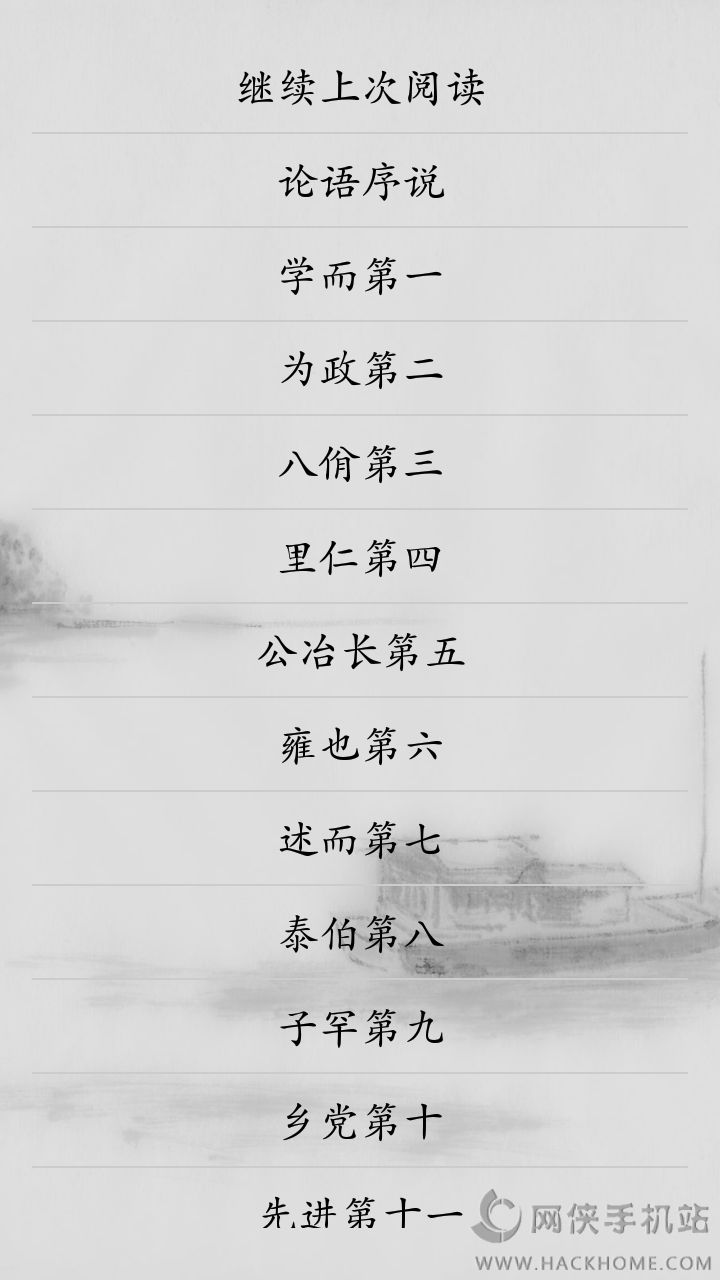 继续上次阅读
论语序说
学而第一
为政第二
八佾第三
里仁第四
公冶长第五
雍也第六
述而第七
泰伯第八
子罕第九
乡党第十
先进第十一
网侠手机站
WWW.HACKHOME.COM